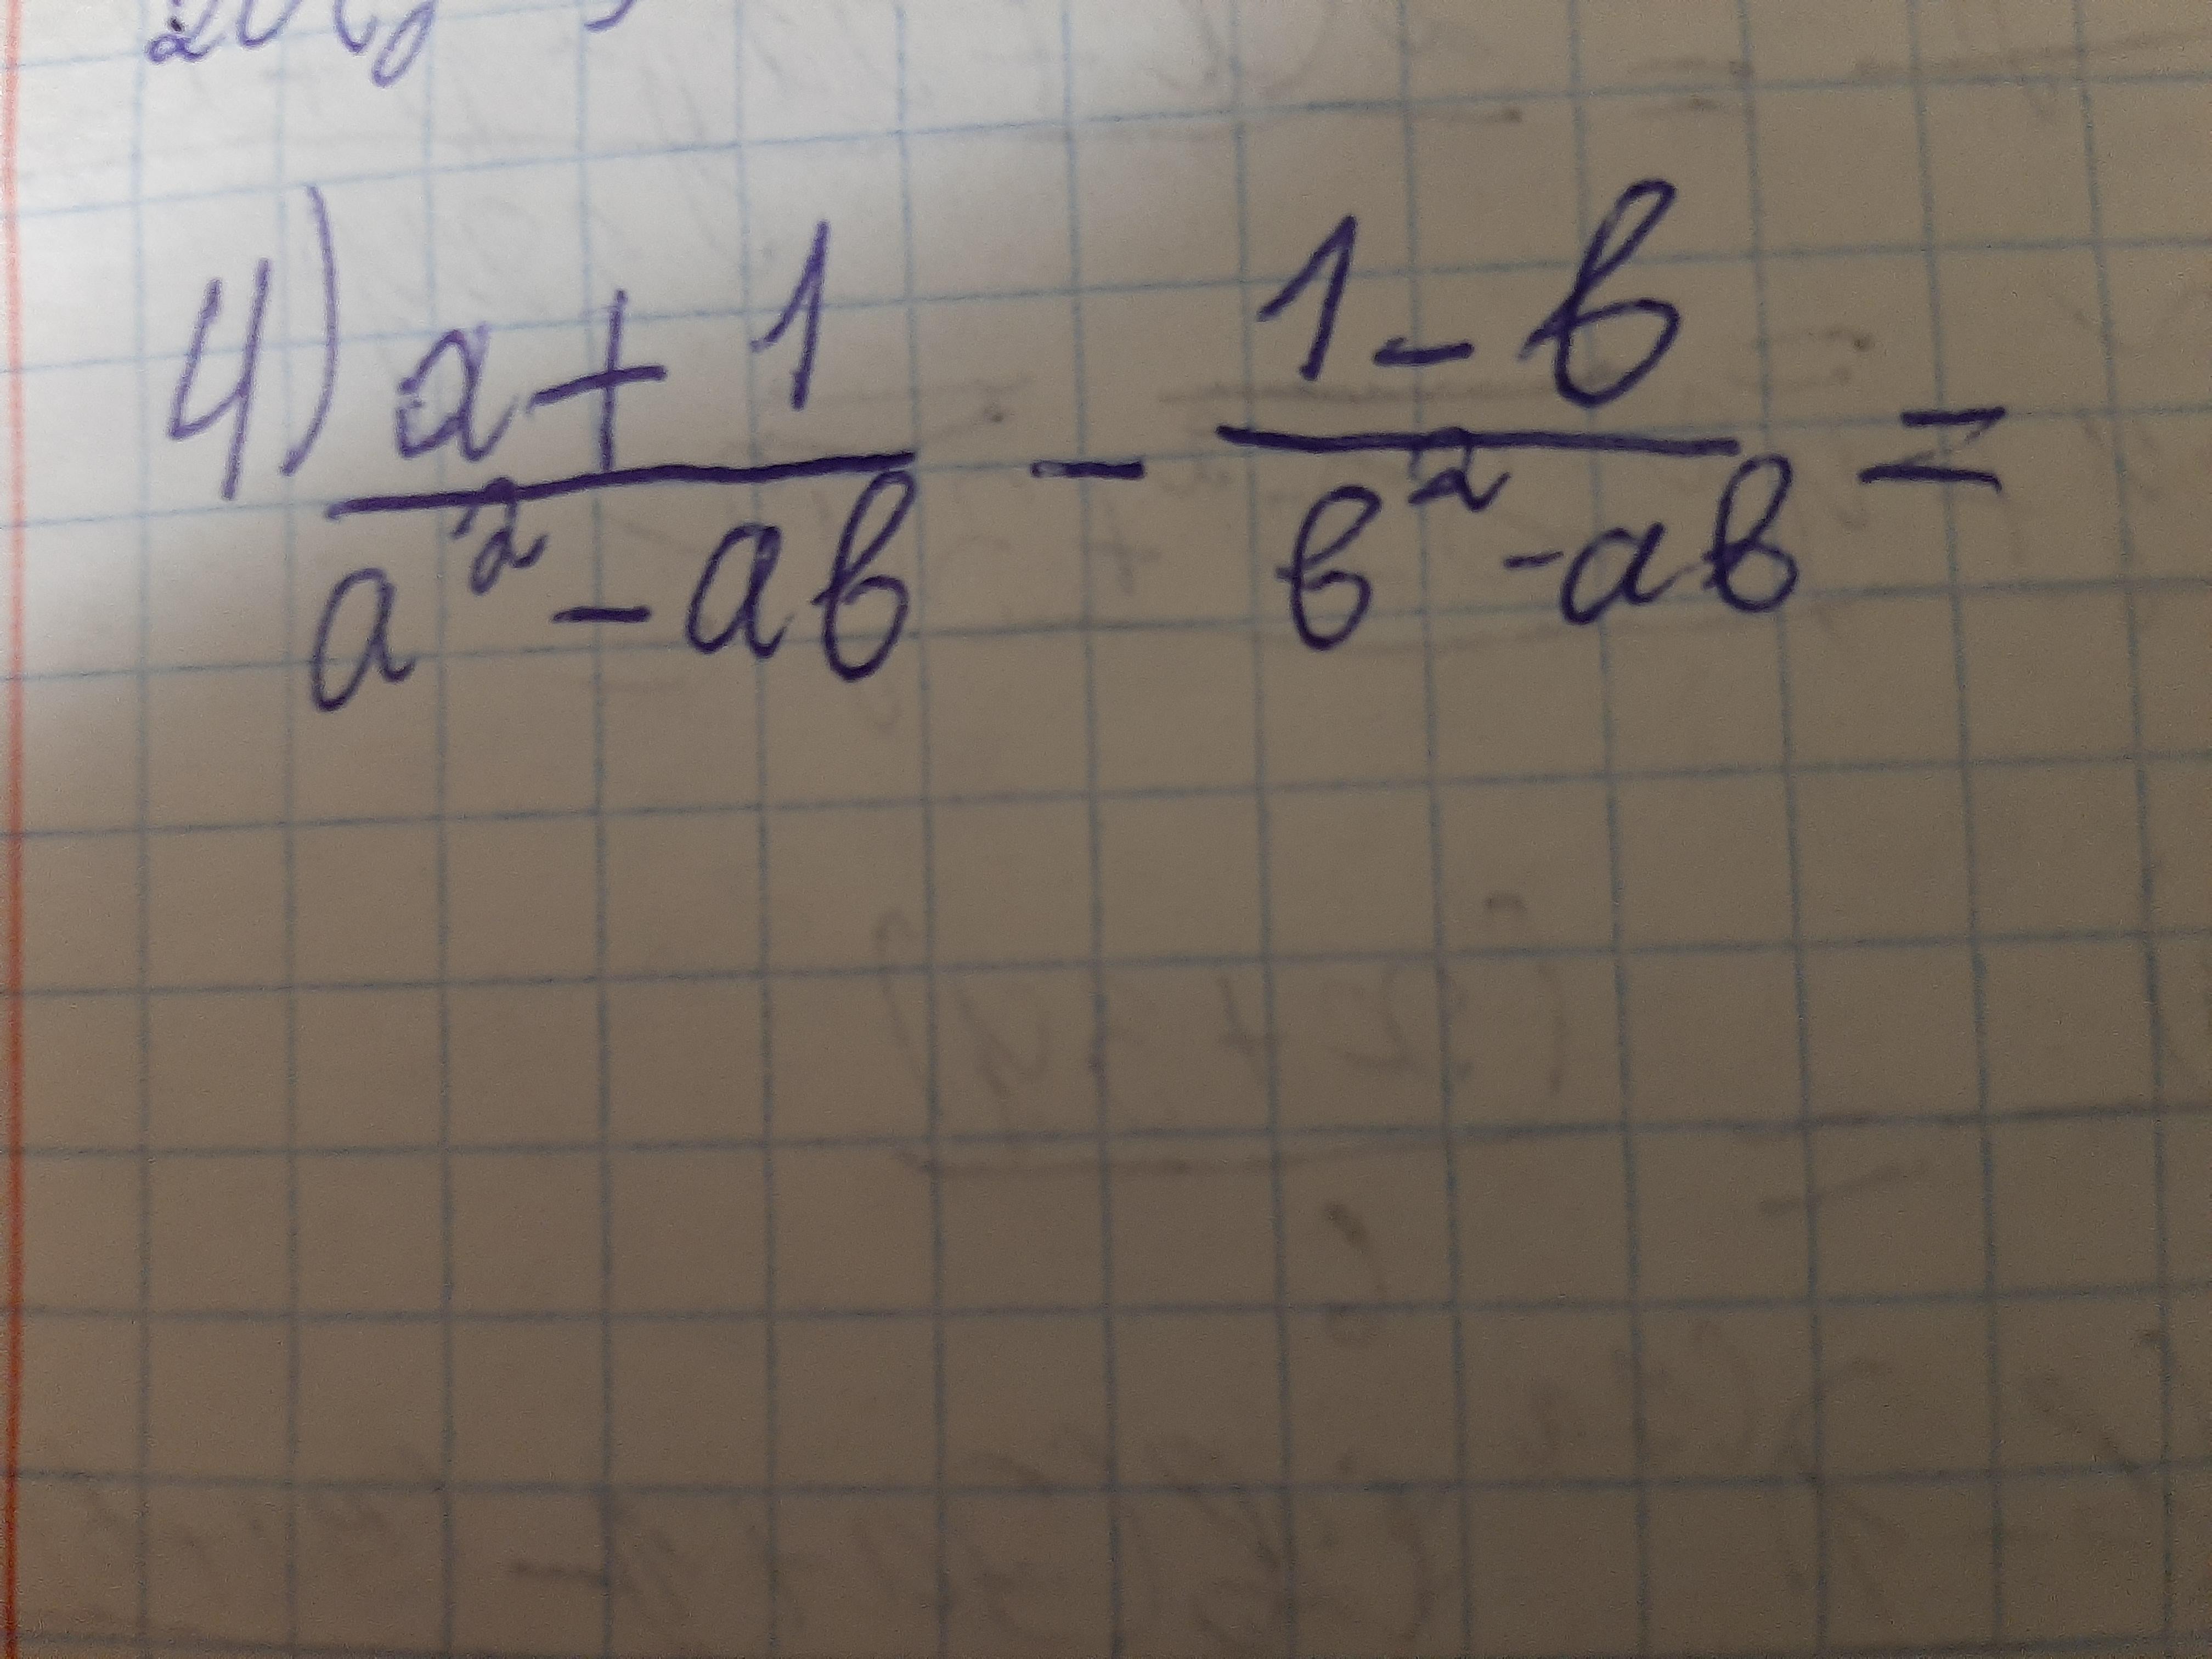 4) a+1 / a² - ab - 1-b / b² - ab =